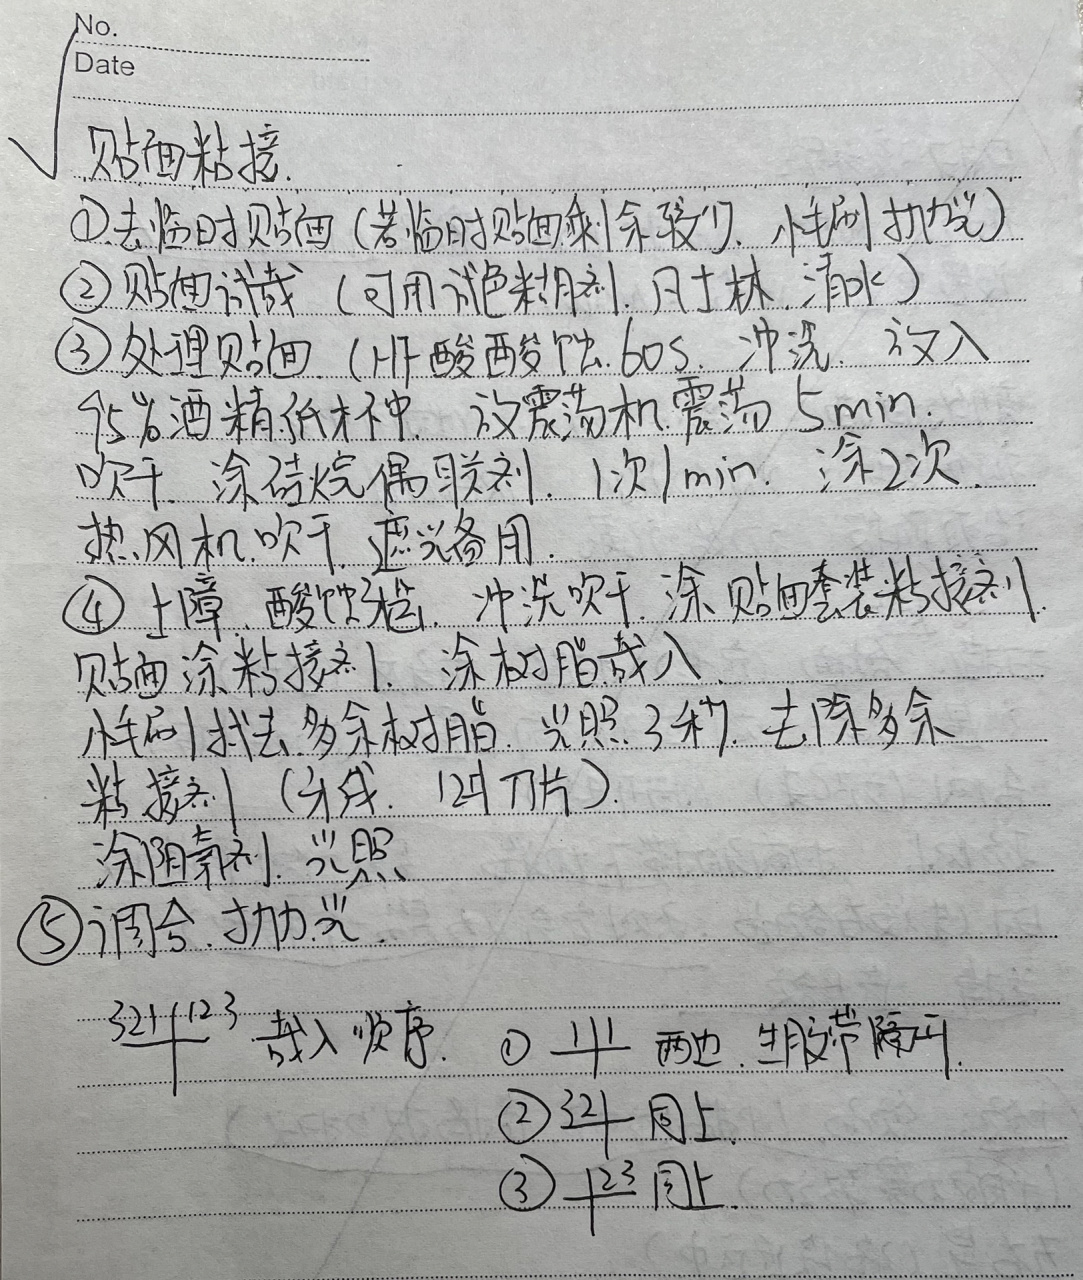 No.
Date
贴面粘接.
①去临时贴面(若临时贴面剩余较少. 小毛刷抛光)
②贴面试戴 (可用试色糊剂. 凡士林. 清水)
③处理贴面 (HF酸酸蚀. 60s. 冲洗. 放入
95%酒精纸杯中. 放震荡机震荡 5min.
吹干. 涂硅烷偶联剂. 1次1min. 涂2次.
热风机吹干. 遮光备用.
④上障. 酸蚀. 冲洗吹干. 涂贴面套装粘接剂.
贴面涂粘接剂. 涂树脂戴入.
小毛刷扫去多余树脂. 光照3秒. 去除多余
粘接剂 (牙线. 12#刀片).
涂阻氧剂. 光照
⑤调合. 抛光.
321 123 戴入顺序. ① 1 1 两边. 生胶带隔开.
② 321 同上.
③ 123 同上.